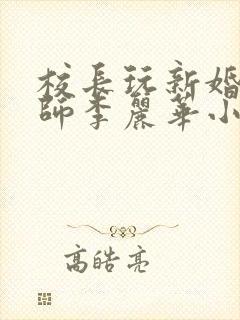 校長玩新婚
師李麗華小
高皓亮